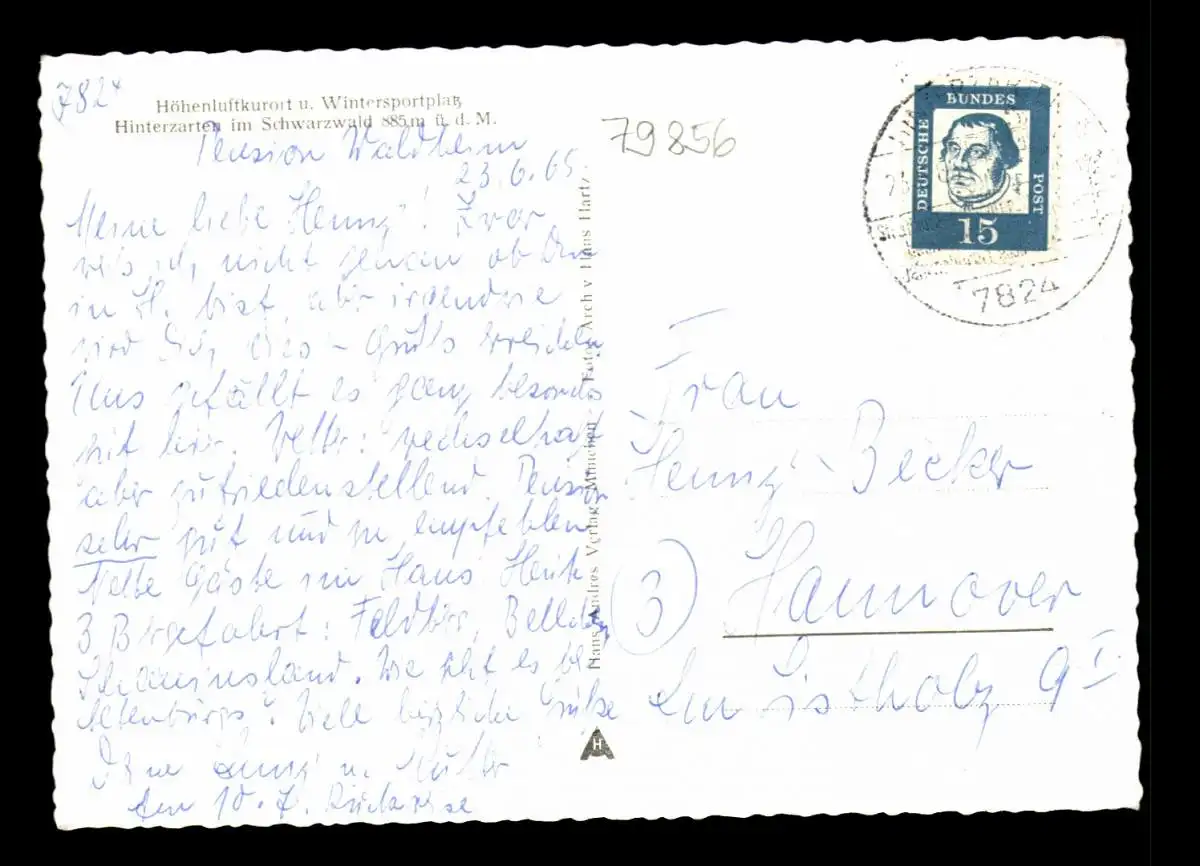 7824
Höhenluftkurort u. Wintersportplatz
Hinterzarten im Schwarzwald 885 m ü. d. M.
Pension Waldheim
23.6.65
Meine liebe Henny! Zwar
weiß ich nicht genau ob Du
in H. bist, aber irgendwie
wird Dich dies Gruß erreichen
Uns gefällt es ganz besonders
hier. Wetter: wechselhaft
aber zufriedenstellend. Pension
sehr gut und zu empfehlen
Nette Gäste im Haus Heute
3 Bergefahrt: Feldbg, Belchen,
Schauinsland. Wie geht es bei
Altenburgs? Viele herzliche Grüße
Deine u. Mutter
Am 10.7. Rückreise
Hans Andres Verlag, München Foto-Archiv Hans Hartz
H
79856
DEUTSCHE BUNDES POST
15
7824
Frau
Henny Becker
(3) Hannover
Am Listholz 9 I